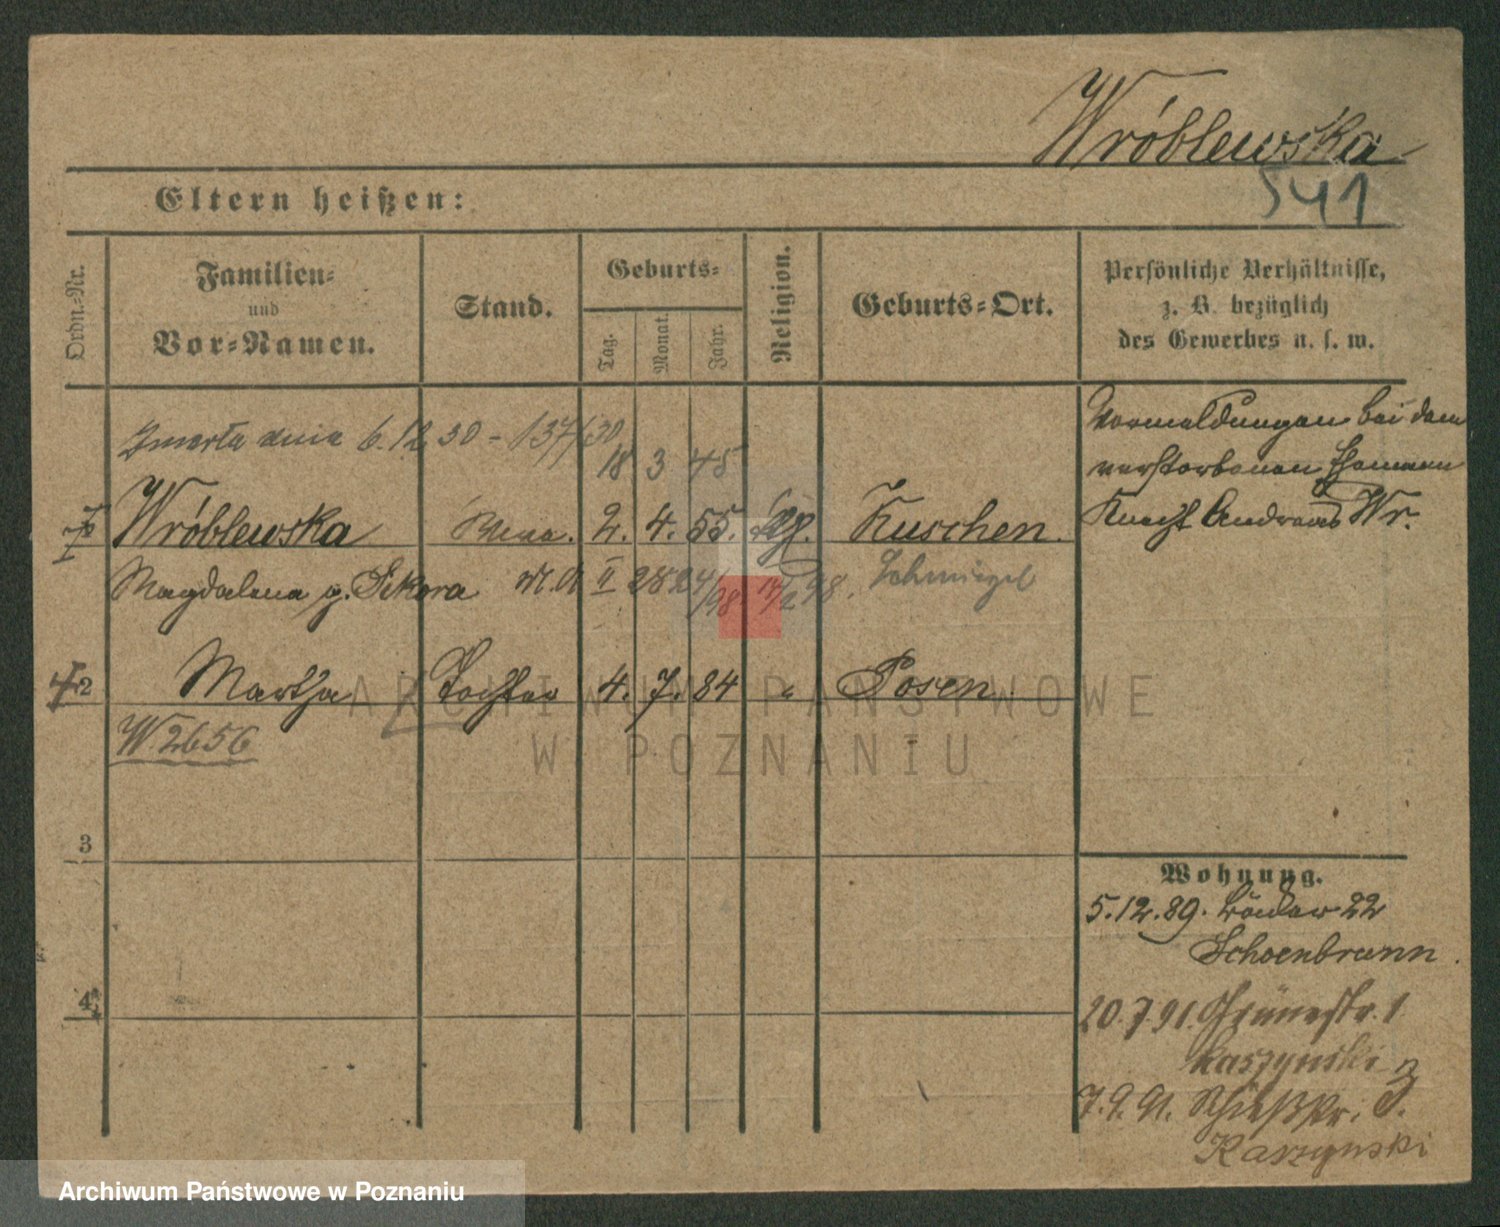 Wróblewska
541
Eltern heißen:
Ordn.-Nr.
Familien-
und
Vor-Namen.
Stand.
Geburts-
Tag.
Monat.
Jahr.
Religion.
Geburts-Ort.
Persönliche Verhältnisse,
z. B. bezüglich
des Gewerbes u. s. w.
Zmarła dnia 6.12 30 - 137/30
18 3 45
Vormeldungen bei dem
verstorbenen Ehemann
Knecht Andreas Wr.
Wróblewska 2. 4. 55. Kuschen.
Magdalena g. Sikora Schmiegel
2 Martha Tochter 4. 7. 84 " Posen.
W. 2656
3
4
Wohnung.
5.12.89. 22
Schoenbrunn.
20.7.91. Grünestr. 1
Kaszynski
7.9.91. Schießstr. 3.
Karzynski
ARCHIWUM PAŃSTWOWE
W POZNANIU
Archiwum Państwowe w Poznaniu